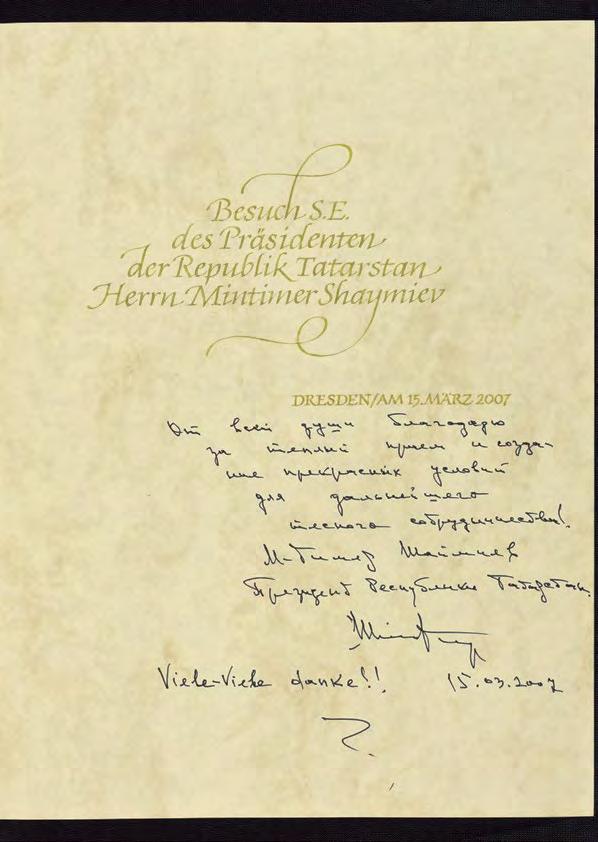 Besuch S.E.
des Präsidenten
der Republik Tatarstan
Herrn Mintimer Shaymiev
DRESDEN/AM 15. MÄRZ 2007
От всей души благодарю
за теплый прием и созда-
ние прекрасных условий
для дальнейшего
тесного сотрудничества!
М-Тимер Шаймиев
Президент Республики Татарстан.
Viele-Viele danke!! 15.03.2007